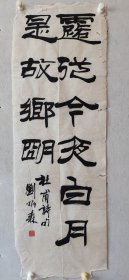 露從今夜白月
是故鄉明
杜甫詩句
劉炳森